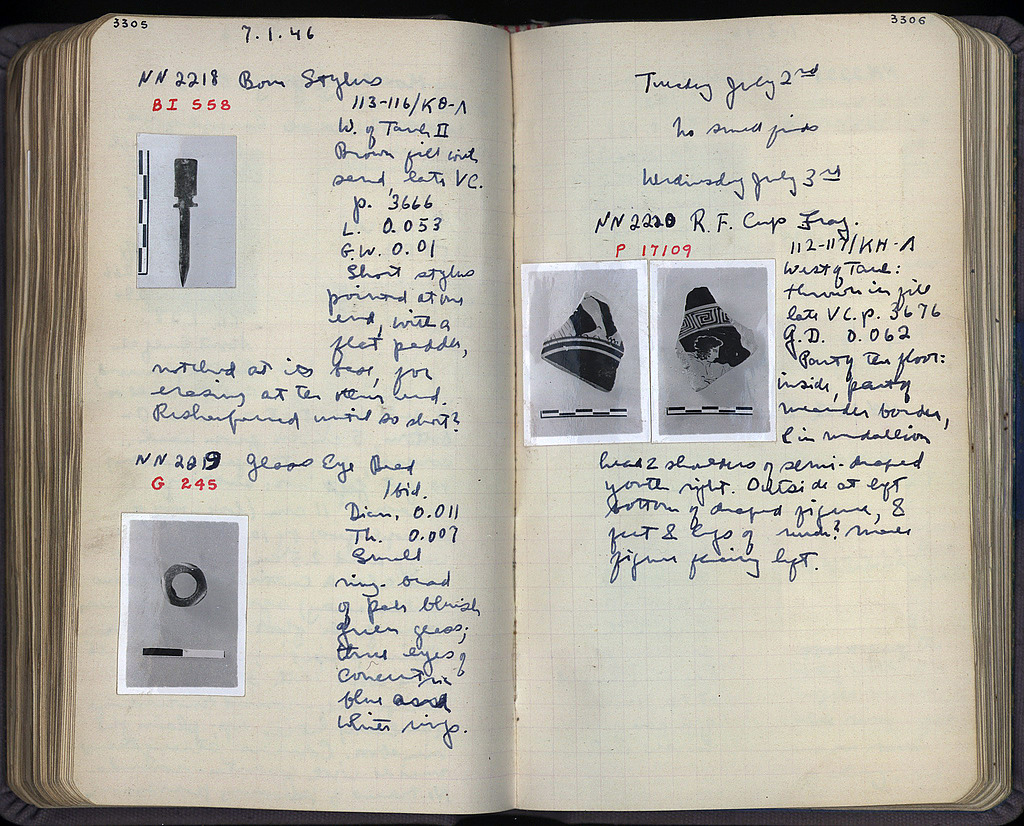 3305
7.1.46
NN 2218 Bone Stylus
BI 558
113-116/ΚΘ-Λ
W. of Tank II
Brown fill with
sand, late VC.
p. 3666
L. 0.053
G.W. 0.01
Short stylus
pointed at one
end, with a
flat paddle,
notched at its base, for
erasing at the other end.
Resharpened until so short?
NN 2219 Glass Eye Bead
G 245
Ibid.
Diam. 0.011
Th. 0.007
Small
ring-bead
of pale bluish
green glass;
three eyes of
concentric
blue and
white rings.
3306
Tuesday July 2nd
No small finds
Wednesday July 3rd
NN 2220 R.F. Cup Frag.
P 17109
112-117/ΚΗ-Λ
West of Tank:
thrown in fill
late VC. p. 3676
G.D. 0.062
Part of the floor:
inside, part of
meander border,
& in medallion
head & shoulders of semi-draped
youth right. Outside at left
bottom of draped figure, &
feet & legs of nude? male
figure facing left.